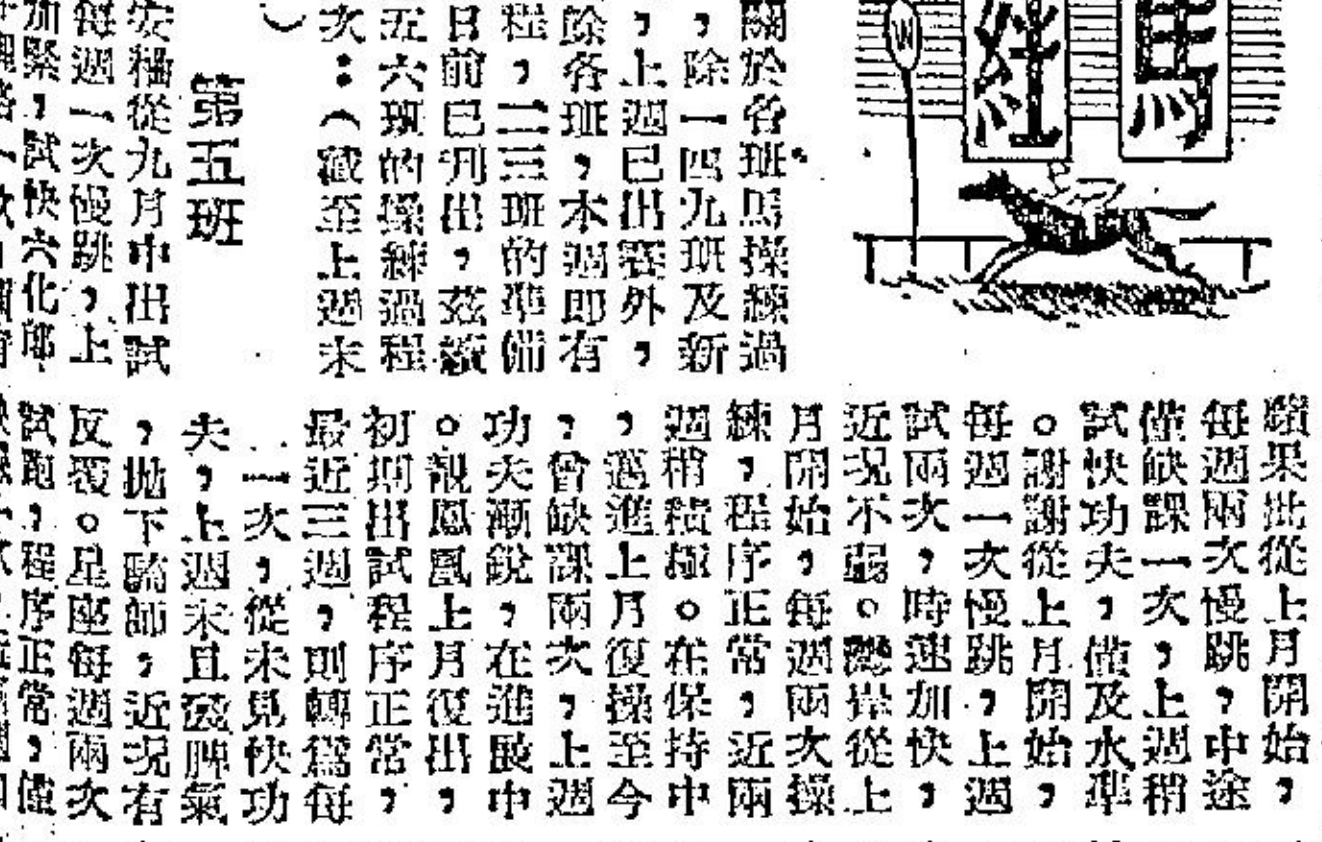 馬經
W
關於各班馬操練過
,除一四九班及新
,上週已出賽外,
餘各班,本週即有
程,二三班的準備
日前已刋出,茲續
五六班的操練過程
次:(截至上週末
)
第五班
安從九月中出試
每週一次慢跳,上
加緊,試快六化郎
果批從上月開始,
每週兩次慢跳,中途
僅缺課一次,上週稍
試快功夫,僅及水準
。謝謝從上月開始,
每週一次慢跳,上週
試兩次,時速加快,
近況不弱。灣岸從上
月開始,每週兩次操
練,程序正常,近兩
週稍積極。在保持中
,邁進上月復操至今
,曾缺課兩次,上週
功夫漸銳,在進展中
。鳳凰上月復出,
初期出試程序正常,
最近三週,則轉爲每
一次,從未見快功
夫,上週末且發脾氣
,拋下騎師,近況有
反覆。星座每週兩次
試跑,程序正常,僅